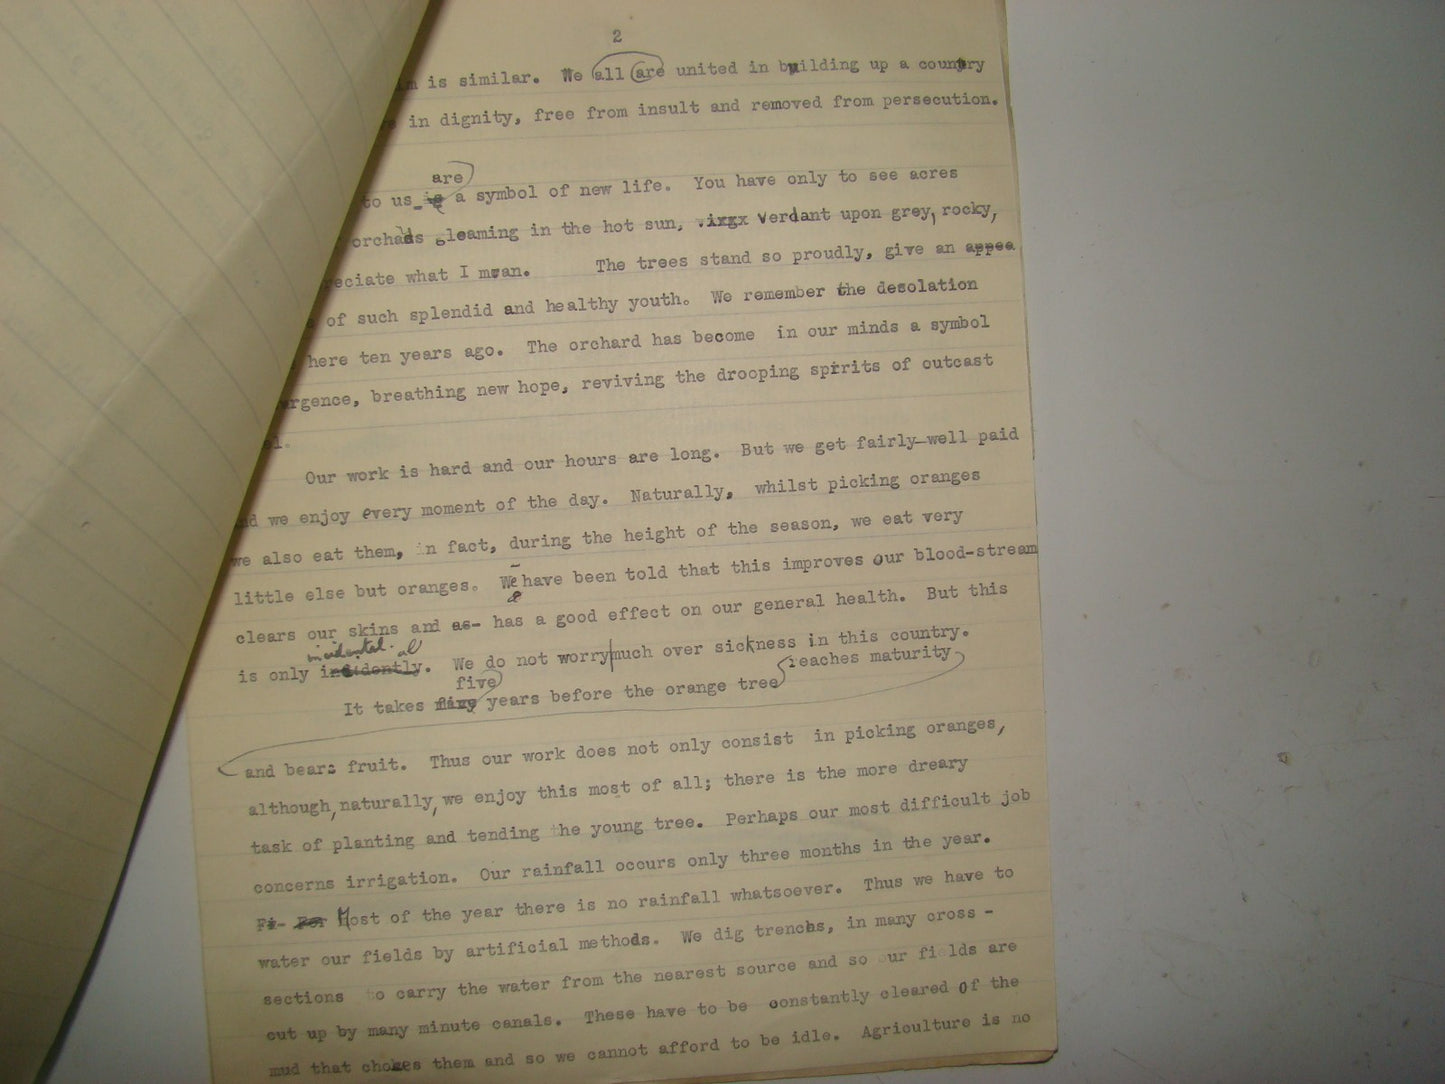 2
is similar. We all are united in building up a country
in dignity, free from insult and removed from persecution.
are
to us is a symbol of new life. You have only to see acres
orchads gleaming in the hot sun, vixgx Verdant upon grey, rocky,
eciate what I mean. The trees stand so proudly, give an appea
of such splendid and healthy youth. We remember the desolation
here ten years ago. The orchard has become in our minds a symbol
urgence, breathing new hope, reviving the drooping spirits of outcast
el.
Our work is hard and our hours are long. But we get fairly-well paid
nd we enjoy every moment of the day. Naturally, whilst picking oranges
we also eat them, in fact, during the height of the season, we eat very
little else but oranges. We have been told that this improves our blood-stream
clears our skins and as- has a good effect on our general health. But this
incidental. al
is only incidently. We do not worry much over sickness in this country.
five reaches maturity
It takes five years before the orange tree
and bears fruit. Thus our work does not only consist in picking oranges,
although, naturally, we enjoy this most of all; there is the more dreary
task of planting and tending the young tree. Perhaps our most difficult job
concerns irrigation. Our rainfall occurs only three months in the year.
Fi- For Most of the year there is no rainfall whatsoever. Thus we have to
water our fields by artificial methods. We dig trenchs, in many cross-
sections to carry the water from the nearest source and so our fields are
cut up by many minute canals. These have to be constantly cleared of the
mud that chokes them and so we cannot afford to be idle. Agriculture is no